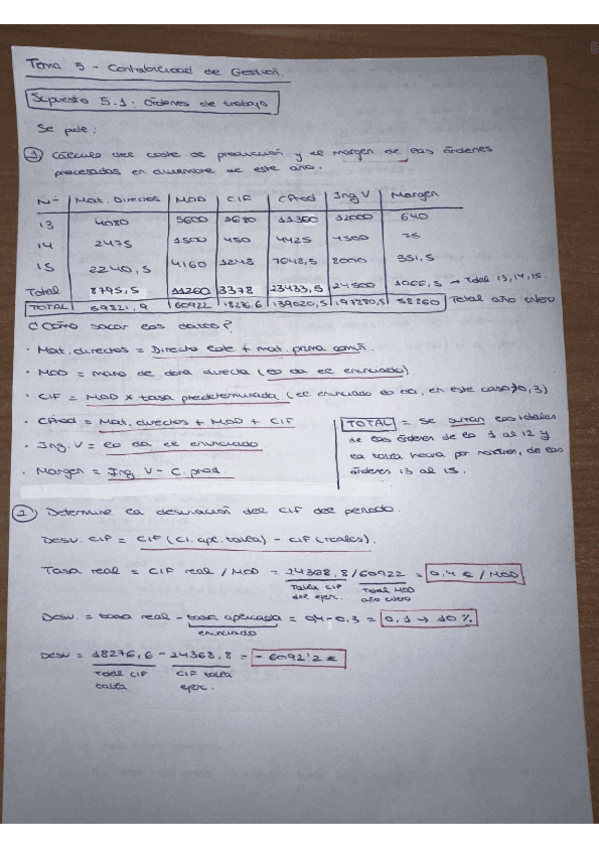 Tema 5 - Contabilidad de Gestión.
Supuesto 5.1: Órdenes de trabajo
Se pide:
1) Cálculo del coste de producción y el margen de las órdenes
procesadas en diciembre de este año.
Nº Mat. Directos MOD CIF CProd Ing V Margen
13 4080 5600 1680 11360 12000 640
14 2475 1500 450 4425 4500 75
15 2240,5 4160 1248 7648,5 8000 351,5
Total 8795,5 11260 3378 23433,5 24500 1066,5 → Total 13,14,15.
TOTAL 59821,9 60922 18276,6 139020,5 197280,5 58260 Total año entero
¿Cómo sacar los datos?
· Mat. directos = Directo lote + mat. prima común.
· MOD = mano de obra directa (lo da el enunciado).
· CIF = MOD x tasa predeterminada (el enunciado lo da, en este caso 0,3)
· CProd = Mat. directos + MOD + CIF
· Ing. V = lo da el enunciado
· Margen = Ing V - C. prod.
TOTAL = se suman los totales
de las órdenes de la 1 al 12 y
la tabla hecha por nosotros, de las
órdenes 13 al 15.
2) Determine la desviación del CIF del periodo.
Desv. CIF = CIF (CI. apl. tabla) - CIF (reales).
Tasa real = CIF real / MOD = 24368,8/60922 = 0,4 € / MOD
Tabla CIF del ejer. Total MOD año entero
Desv. = tasa real - tasa aplicada = 0,4 - 0,3 = 0,1 → 10%
enunciado
Desv = 18276,6 - 24368,8 = - 6092'2 €
Total CIF tabla CIF tabla ejer.